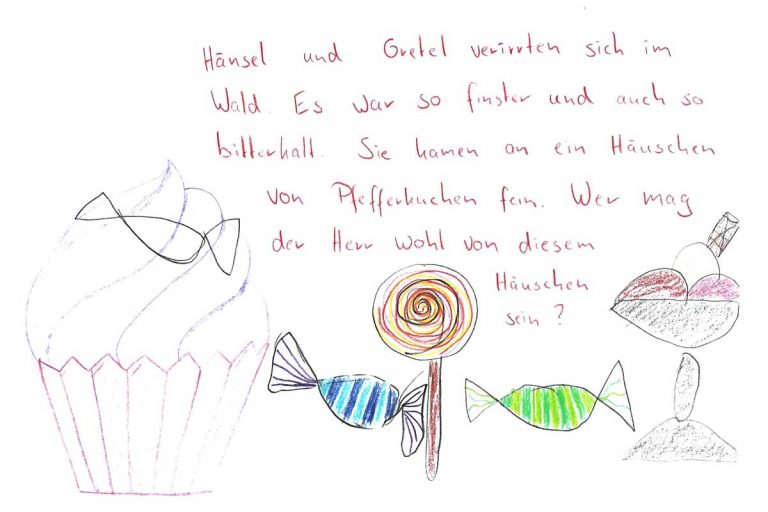 Hänsel und Gretel verirrten sich im
Wald. Es war so finster und auch so
bitterkalt. Sie kamen an ein Häuschen
von Pfefferkuchen fein. Wer mag
der Herr wohl von diesem
Häuschen
sein?